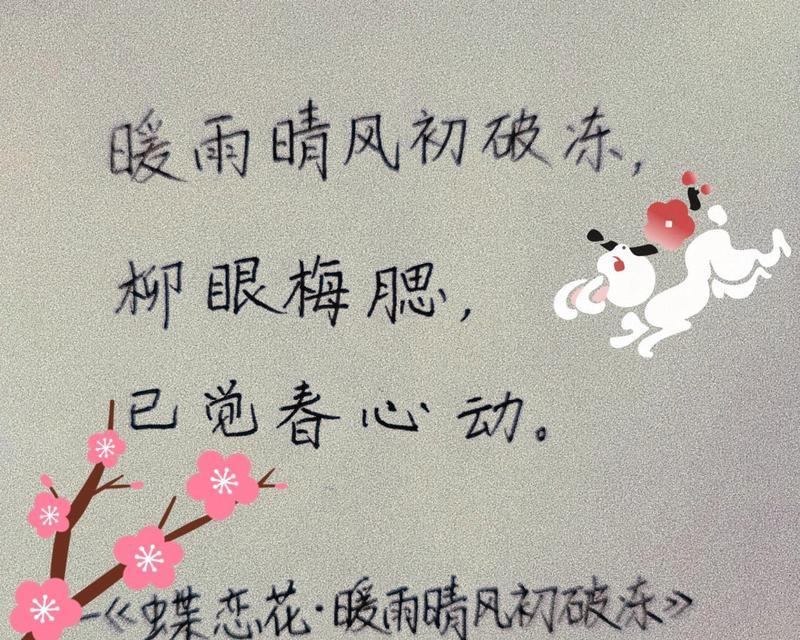 暖雨晴风初破冻，
柳眼梅腮，
已觉春心动。
-《蝶恋花·暖雨晴风初破冻》